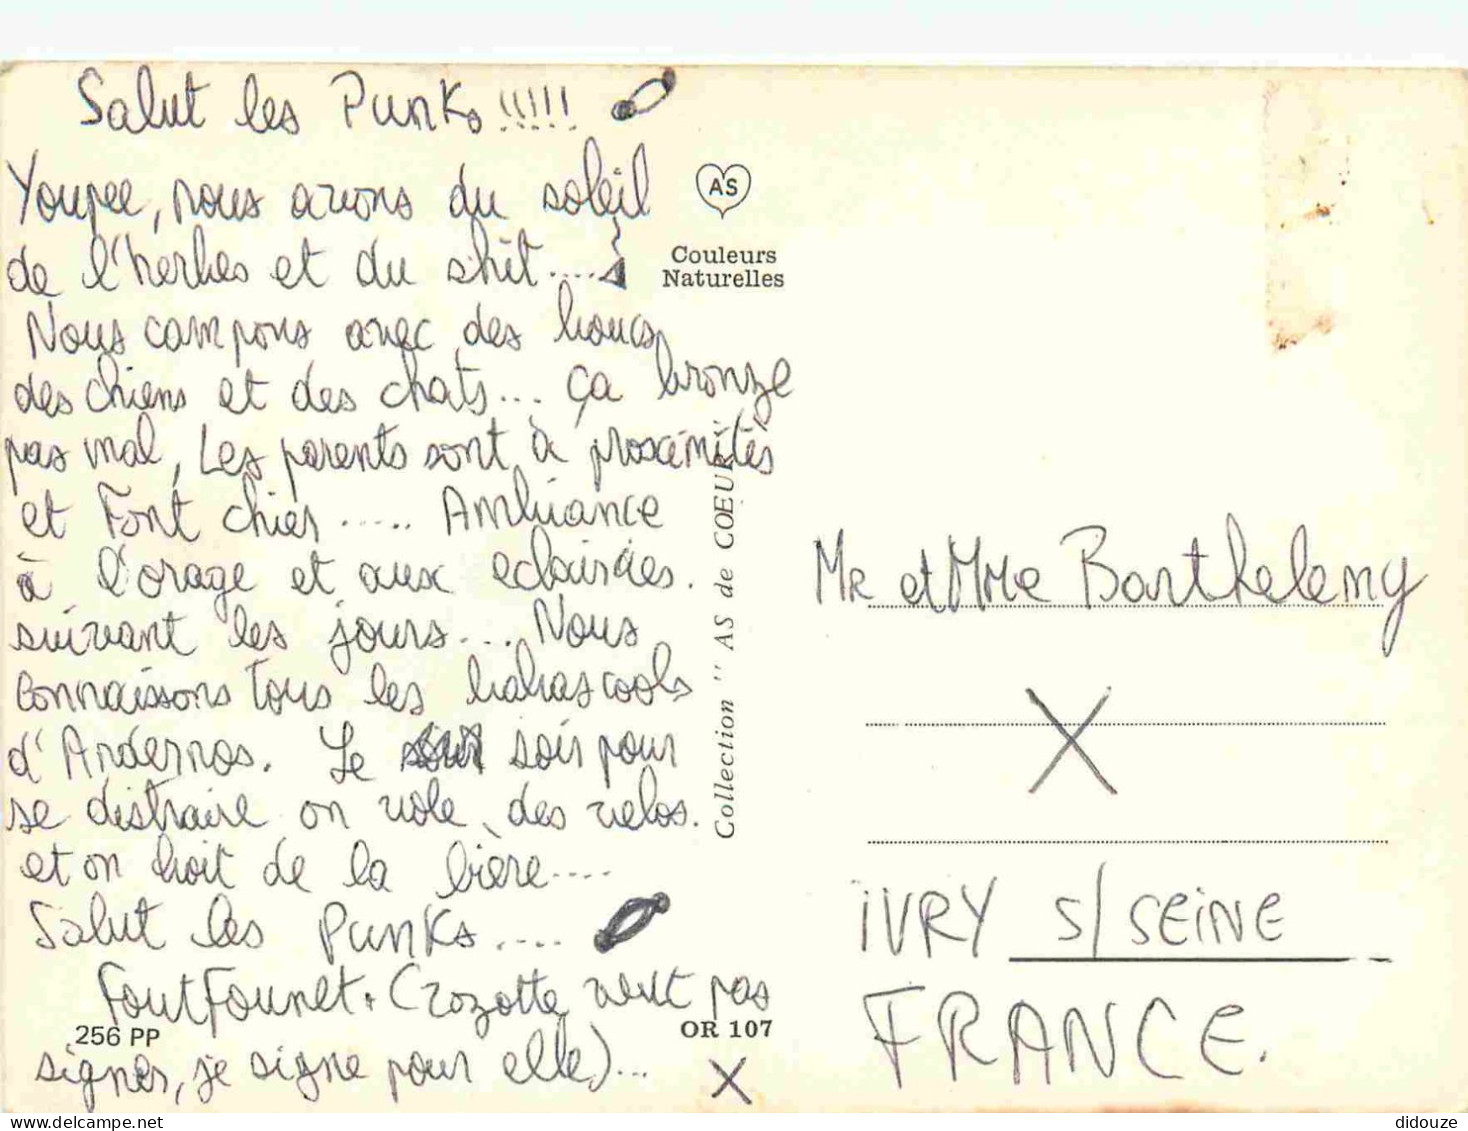 Salut les Punks !!!!!
Youpee, nous avons du soleil
de l'herbes et du shit....
Nous campons avec des boucs
des chiens et des chats... ça bronze
pas mal, Les parents sont à proximités
et Font chier..... Ambiance
à l'orage et aux eclaircies.
suivant les jours.... Nous
connaissons Tous les babas cools
d'Andernos. Le soir pour
se distraire on vole des velos.
et on boit de la bière....
Salut les Punks....
FoutFounet. (Zozotte veut pas
signer, je signe pour elle)...
256 PP
OR 107
AS
Couleurs
Naturelles
Collection "AS de COEUR"
Mr et Mme Barthelemy
IVRY S/SEINE
FRANCE.
didouze